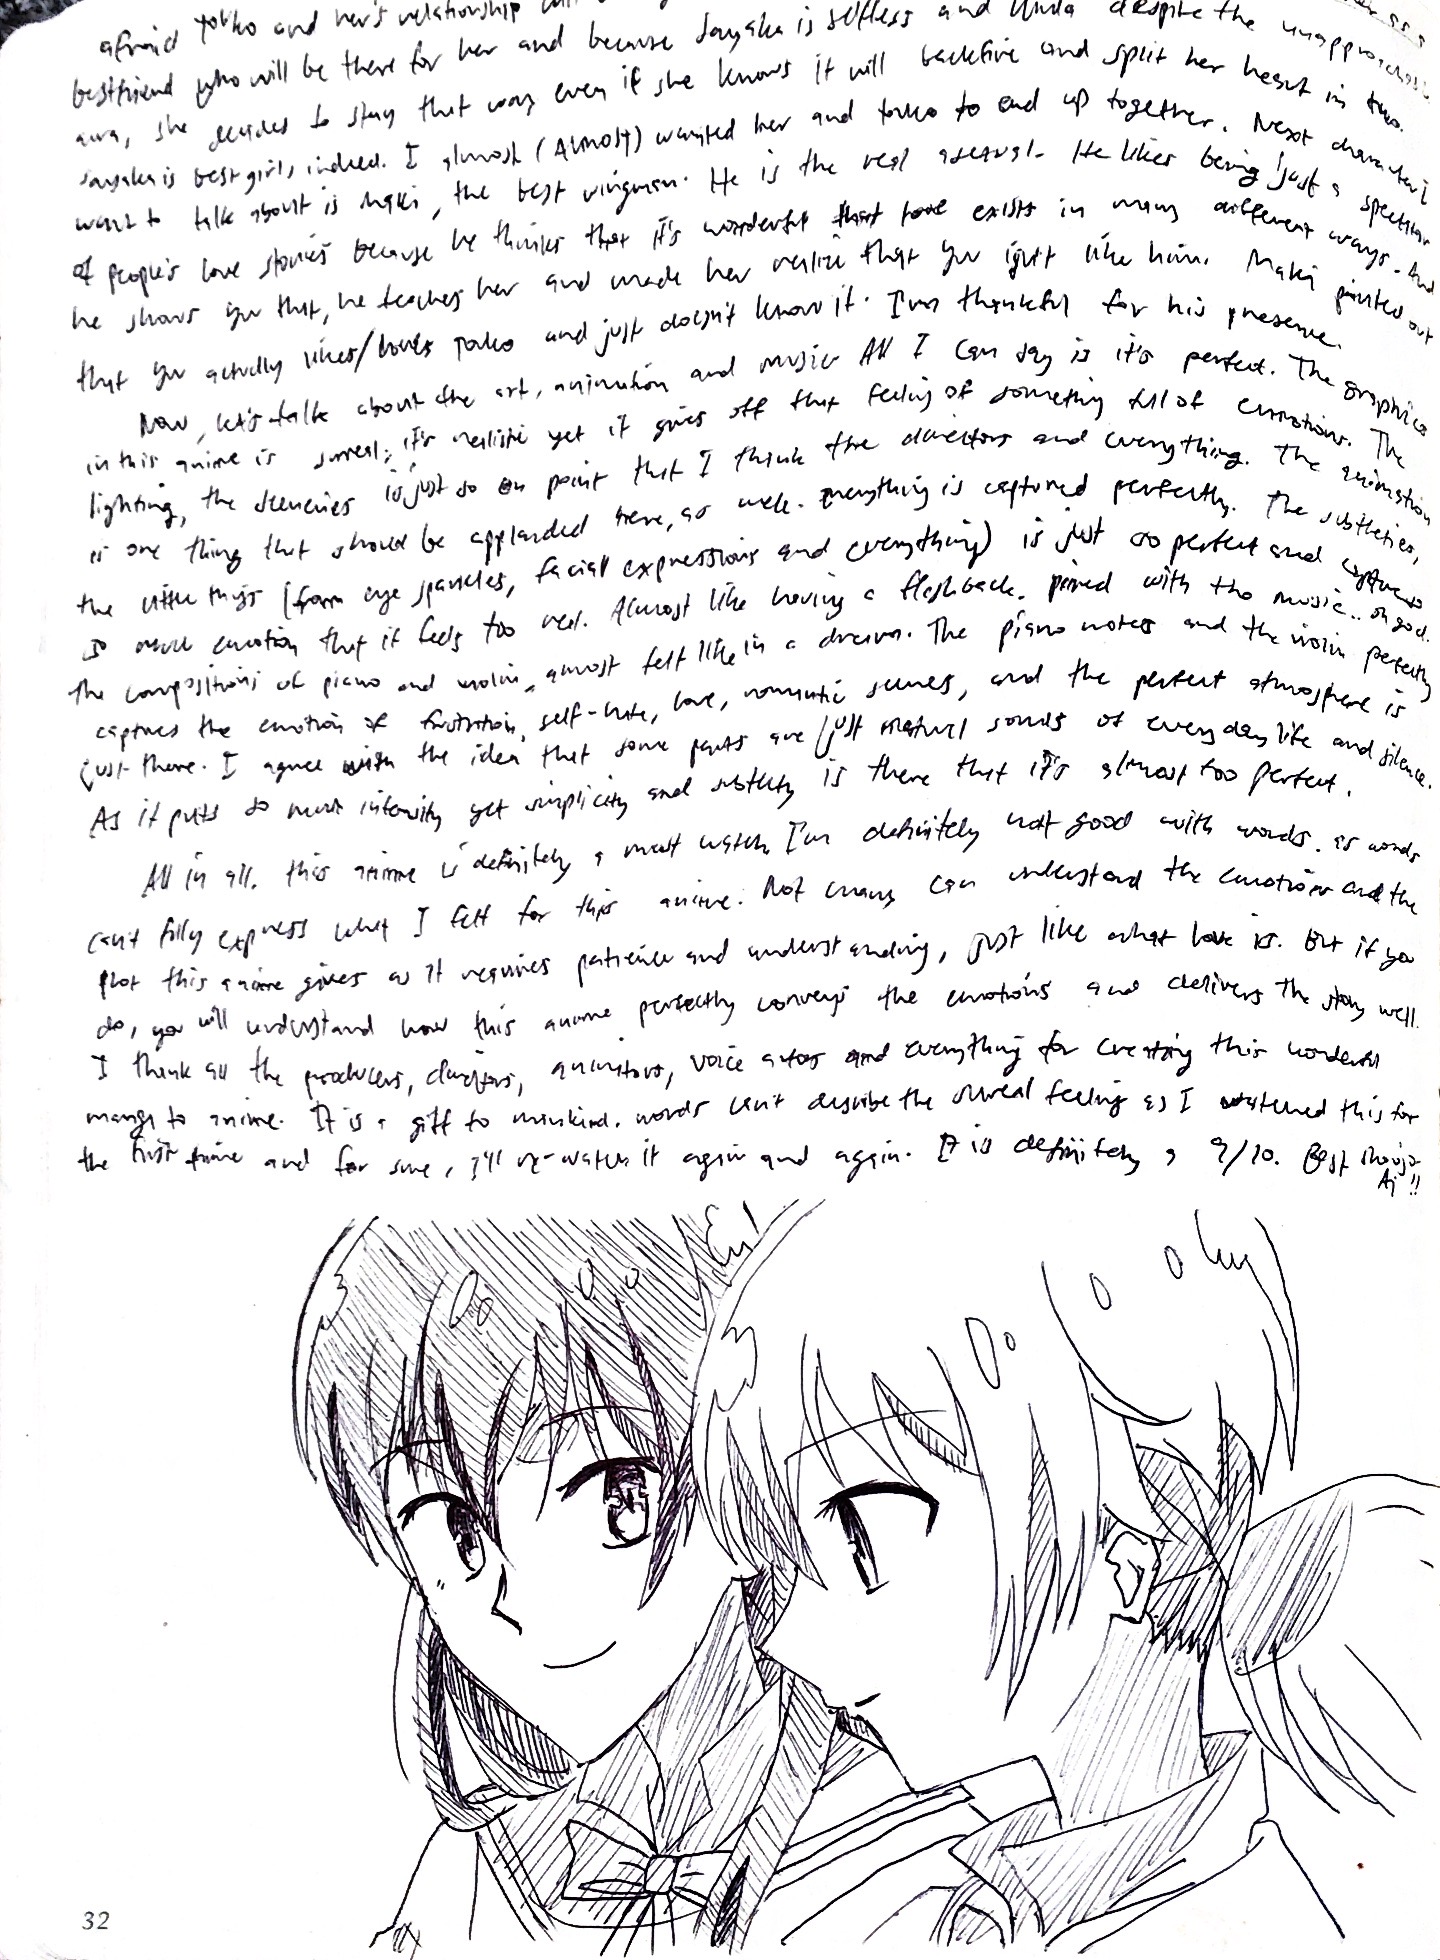 afraid Touko and her's relationship will
bestfriend who will be there for her and because Sayaka is selfless and kinda despite the unapproachable
aura, she decides to stay that way even if she knows it will backfire and split her heart in two.
Sayaka is best girl, indeed. I almost (ALMOST) wanted her and touko to end up together. Next character I
want to talk about is Maki, the best wingman. He is the real asexual. He likes being just a spectator
of people's love stories because he thinks that it's wonderful that love exists in many different ways. And
he shows Yuu that, he teaches her and made her realize that Yuu isn't like him. Maki pointed out
that Yuu actually likes/loves Touko and just doesn't know it. I'm thankful for his presence.
Now, let's talk about the art, animation and music All I can say is it's perfect. The graphics
in this anime is surreal; it's realistic yet it gives off that feeling of something full of emotions. The
lighting, the sceneries is just so on point that I think the directors and everything. The animation
is one thing that should be applauded here, as well. Everything is captured perfectly. The subtleties,
the little things (from eye sparkles, facial expressions and everything) is just so perfect and captures
so much emotion that it feels too real. Almost like having a flashback. paired with the music.. oh god.
The compositions of piano and violin, almost felt like in a dream. The piano notes and the violin perfectly
captures the emotion of frustration, self-hate, love, romantic scenes, and the perfect atmosphere is
just there. I agree with the idea that some parts are just natural sounds of everyday life and silence.
As it puts so much intensity yet simplicity and subtlety is there that it's almost too perfect.
All in all, this anime is definitely a must watch. I'm definitely not good with words. as words
can't fully express what I felt for this anime. Not many can understand the emotions and the
plot this anime gives as it requires patience and understanding, just like what love is. But if you
do, you will understand how this anime perfectly conveys the emotions and delivers the story well.
I thank all the producers, directors, animators, voice actors and everything for creating this wonderful
manga to anime. It is a gift to mankind. words can't describe the surreal feeling as I watched this for
the first time and for sure, I'll re-watch it again and again. It is definitely a 9/10. Best shoujo
Ai!!
32